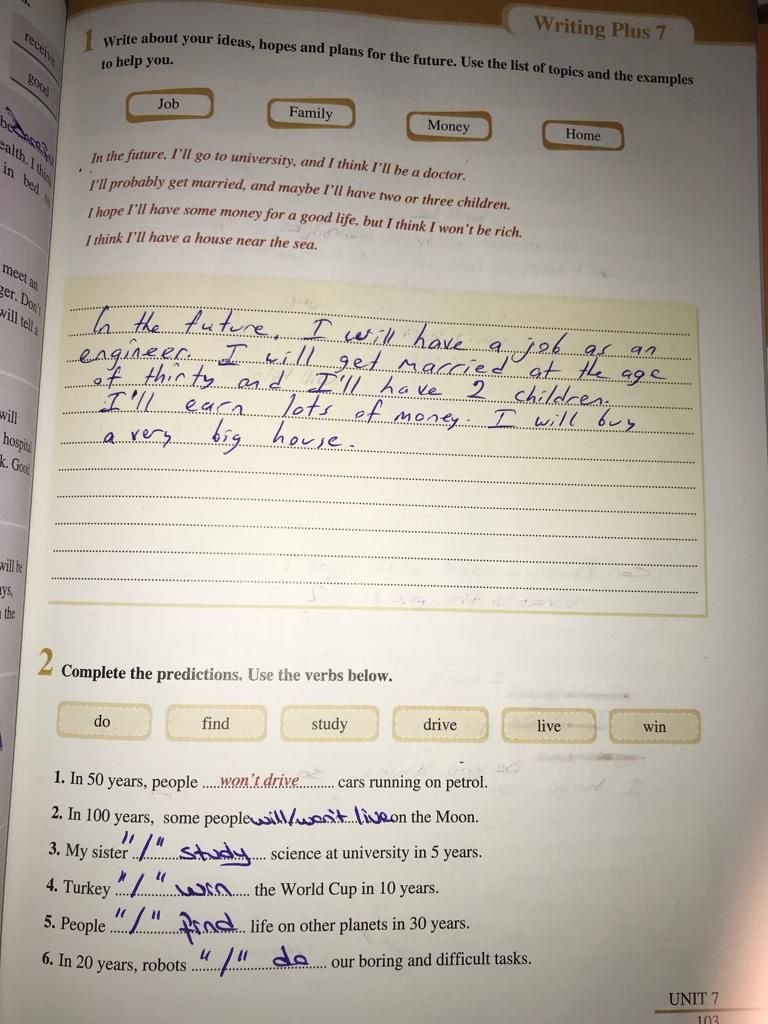 receive
good
ealth. I think
in bed on
meet an
ger. Don't
will tell a
will
hospital
k. Good
will be
ys,
the
Writing Plus 7
1 Write about your ideas, hopes and plans for the future. Use the list of topics and the examples
to help you.
Job
Family
Money
Home
In the future, I'll go to university, and I think I'll be a doctor.
I'll probably get married, and maybe I'll have two or three children.
I hope I'll have some money for a good life, but I think I won't be rich.
I think I'll have a house near the sea.
In the future, I will have a job as an
engineer. I will get married at the age
of thirty and I'll have 2 children.
I'll earn lots of money. I will buy
a very big house.
2 Complete the predictions. Use the verbs below.
do
find
study
drive
live
win
1. In 50 years, people .....won't drive......... cars running on petrol.
2. In 100 years, some people will/won't live on the Moon.
3. My sister "/" study .... science at university in 5 years.
4. Turkey "/" win the World Cup in 10 years.
5. People "/" find life on other planets in 30 years.
6. In 20 years, robots "/" do our boring and difficult tasks.
UNIT 7
103